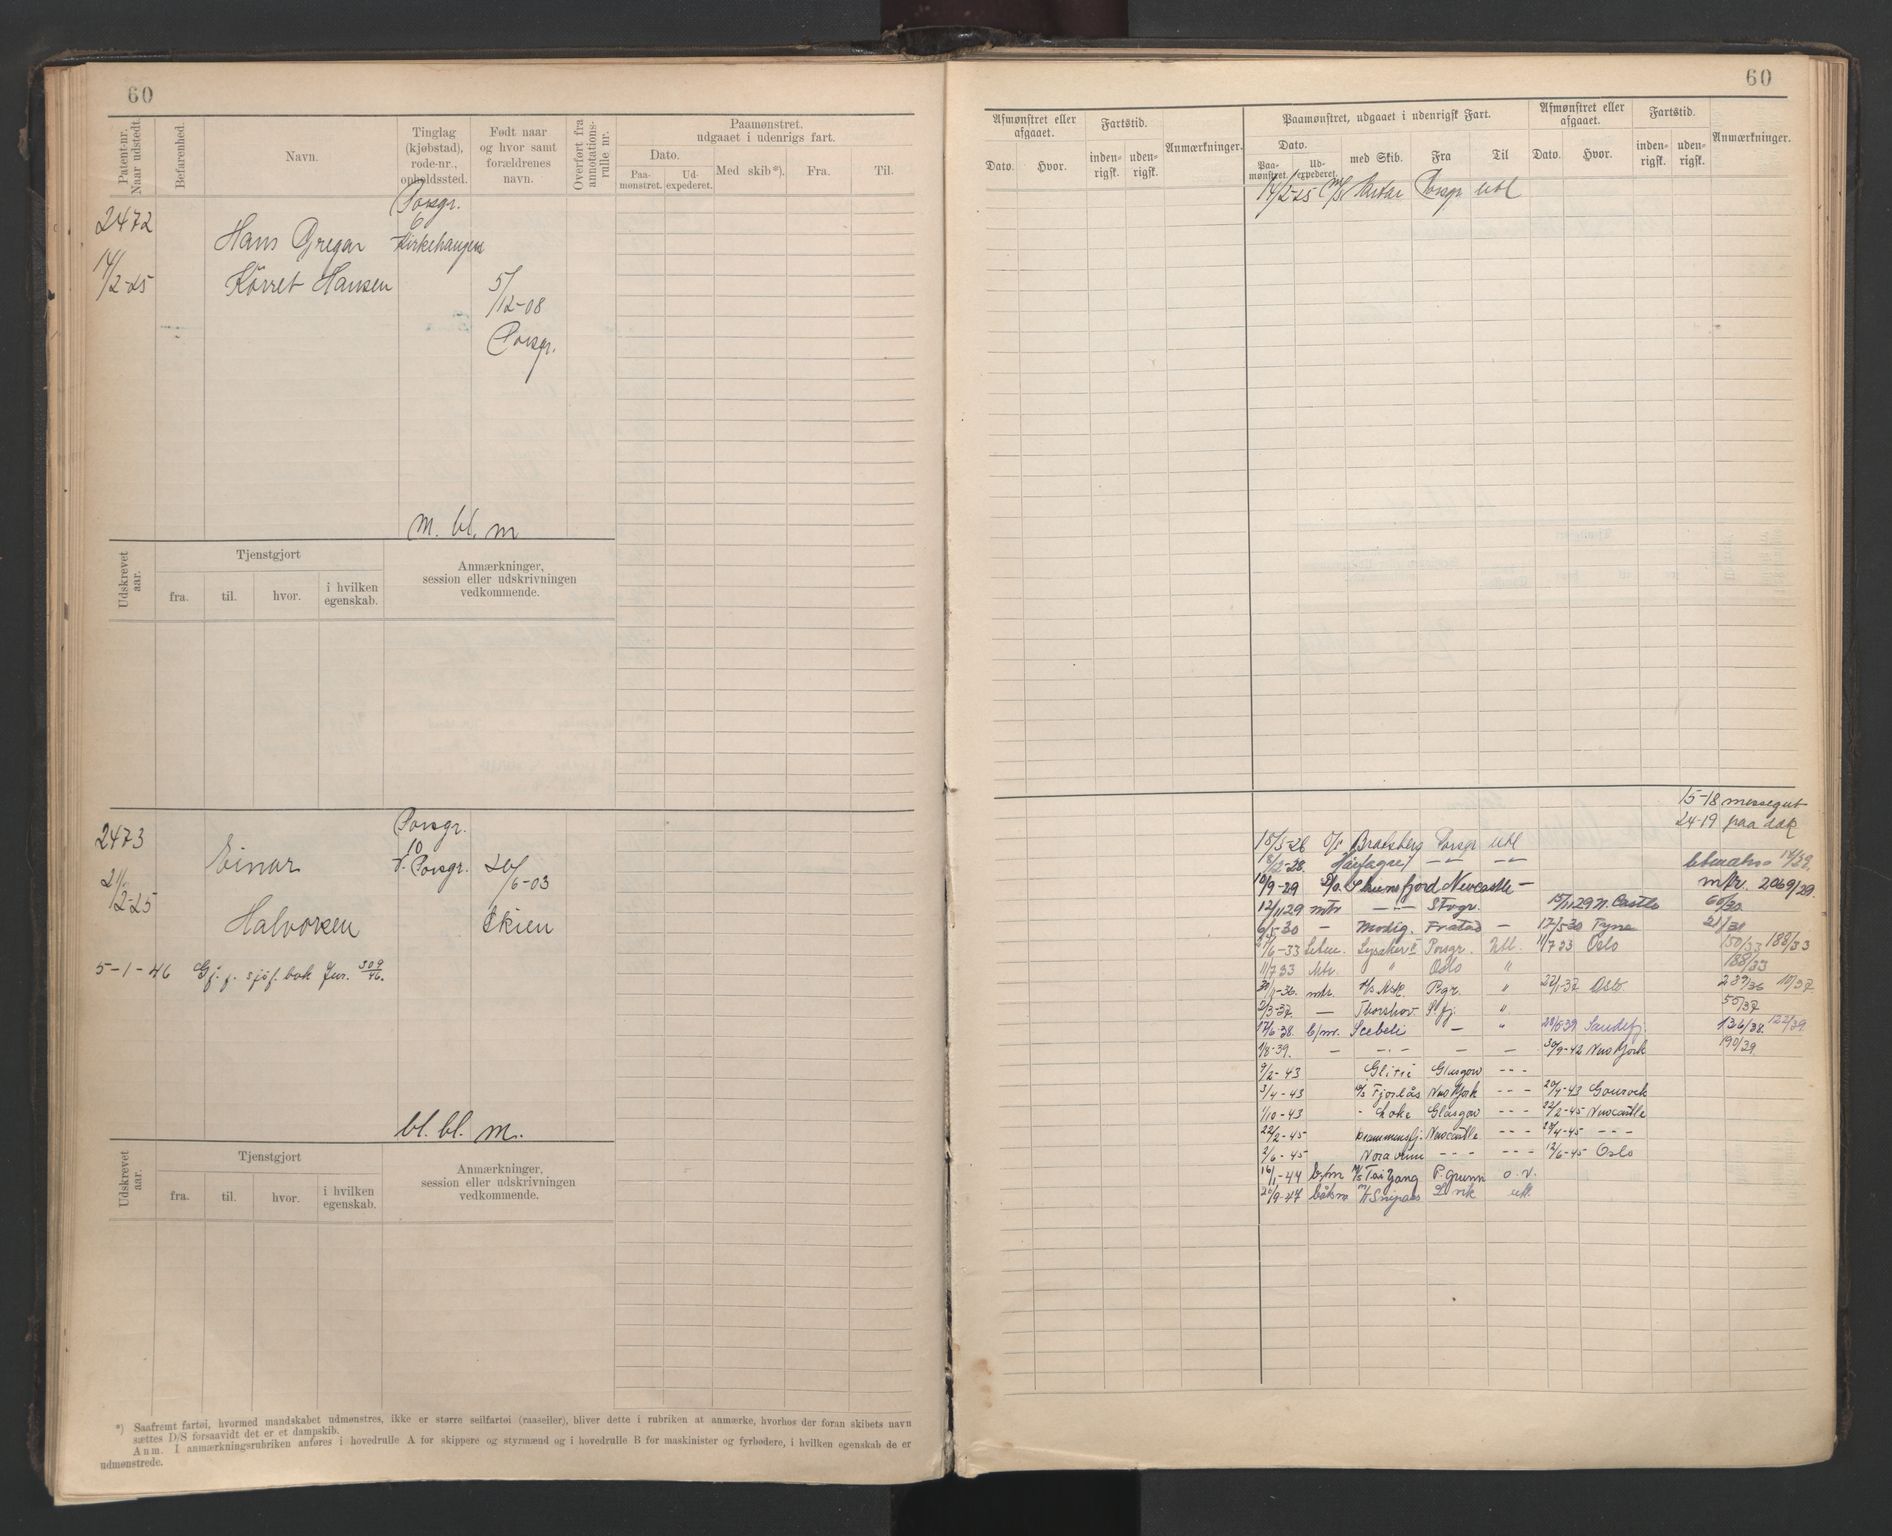 60
Patent-nr. Naar udstedt.
Befarenhed.
Navn.
Tinglag (kjøbstad), rode-nr., opholdssted.
Født naar og hvor samt forældrenes navn.
Overført fra annotations-rulle nr.
Paamønstret, udgaaet i udenrigs fart.
Dato.
Paa-mønstret.
Ud-expederet.
Med skib*).
Fra.
Til.
2472
14/2-25
Hans Gregar
Körret Hansen
Porsgr.
6
Kirkehaugen
5/12-08
Porsgr.
m. bl. m
Udskrevet aar.
Tjenstgjort
fra.
til.
hvor.
i hvilken egenskab.
Anmærkninger, session eller udskrivningen vedkommende.
2473
21/2-25
Einar
Halvorsen
Porsgr.
10
V. Porsgr.
20/6-03
Skien
5-1-46 Gj. f. sjøf. bok Jur. 309/46.
bl. bl. m.
Udskrevet aar.
Tjenstgjort
fra.
til.
hvor.
i hvilken egenskab.
Anmærkninger, session eller udskrivningen vedkommende.
*) Saafremt fartøi, hvormed mandskabet udmønstres, ikke er større seilfartøi (raaseiler), bliver dette i rubriken at anmærke, hvorhos der foran skibets navn
sættes D/S forsaavidt det er et dampskib.
Anm. I anmærkningsrubriken anføres i hovedrulle A for skippere og styrmænd og i hovedrulle B for maskinister og fyrbødere, i hvilken egenskab de er
udmønstrede.
60
Afmønstret eller afgaaet.
Dato.
Hvor.
Fartstid.
inden-rigsk.
uden-rigsk.
Anmærkninger.
Paamønstret, udgaaet i udenrigsk Fart.
Dato.
Paa-mønstret.
Ud-expederet.
med Skib.
Fra
Til
Afmønstret eller afgaaet.
Dato.
Hvor.
Fartstid.
inden-rigsk.
uden-rigsk.
Anmærkninger.
14/2-25 M/S Porsgr. Utl
15-18 messegut
24-19 paa dæk
18/5-26 Bratsberg Porsgr Utl
18/2-28. Haarfagre — —
10/9-29 Newcastle — mtr. 2069/29
12/11 29 mtr — Stvgr. 15/11 29 N. Castle 60/30
6/5-30 — Modig. — 17/5-30 Tyne 21/30
/6-33 Lysaker V Porsgr. Utl. 11/7 33 Oslo 150/33 188/33
11/7 33 Mtr. " Oslo " 188/33
mtr. D/S Ask Pgr. " 22/1-37 Oslo. 239/36 10/37.
2/3-37 — Thorshov S.fj. " 55/37
17/6-38. Scebeli — " Sandefj. 136/38. 122/39.
1/8-39. — — — — 30/9-42 New York 190/39
9/2-43 Glitre Glasgow ---
3/4-43 D/S Fjordås New York --- 20/4-43 Gourock
1/10-43 " Loke Glasgow --- 22/2-45 Newcastle
22/2-45 Drammensfj. Newcastle --- 28/4-45 ---
2/6-45 Noravinn --- --- 12/6-45 Oslo
16/1-47 b/m M/S Tai Yang P.grunn o.v.
20/9-47 båtsm M/T Snipaas L.vik utl.